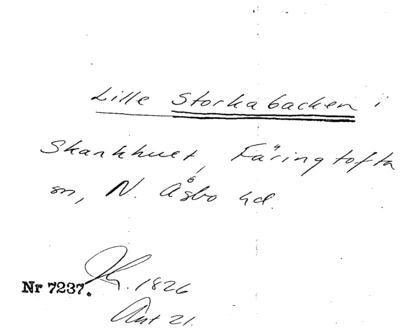 Lille Storkabacken i
Skankhult, Färingtofta
sn, N. Åsbo hd.
Nr 7237.
K. 1826
Ant 21.